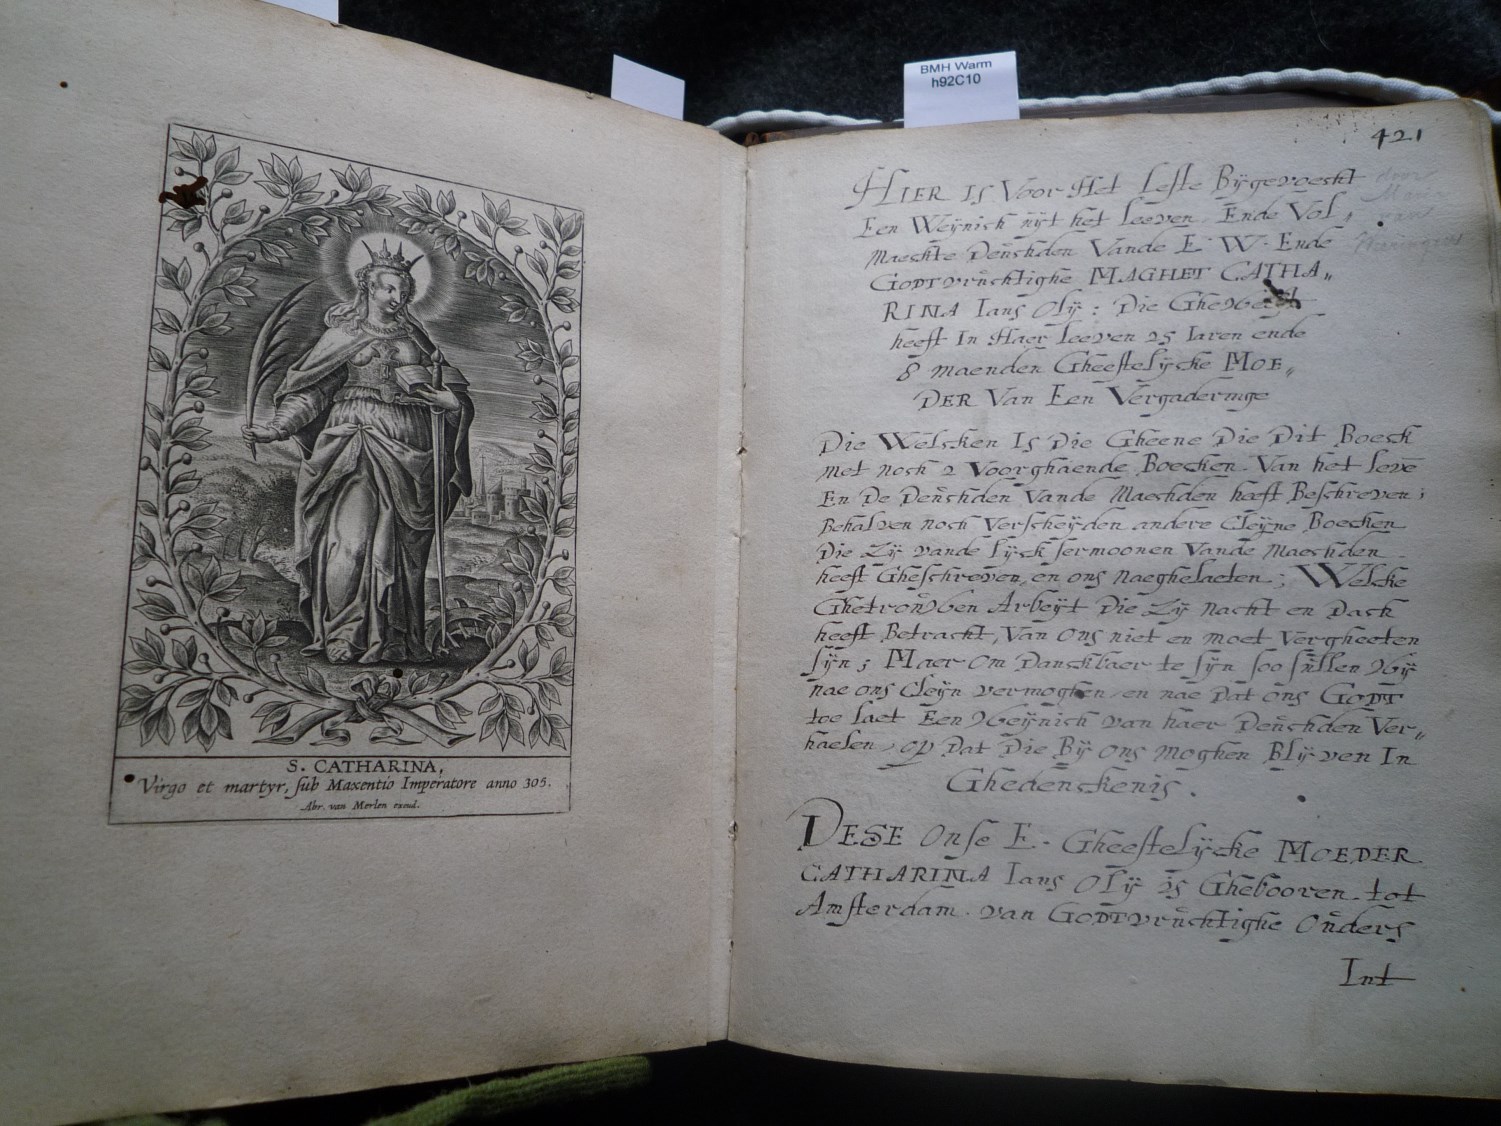 BMH Warm
h92C10
S. CATHARINA,
Virgo et martyr, sub Maxentio Imperatore anno 305.
Abr. van Merlen excud.
421
HIER IS Voor Het Leste Bÿgevoecht
door
Een Weÿnich uÿt het Leeven Ende Vol,,
van
Maeckte Deuchden Vande E W. Ende
GODTvruchtighe MAGHET CATHA,,
RINA Ians Olÿ: Die Gheweest
heeft In Haer Leeven 25 Iaren ende
8 maenden Gheestelÿcke MOE,,
DER Van Een Vergaderinge
Die Welcken Is Die Gheene Die Dit Boeck
Met noch 2 Voorghaende Boecken Van het leve
En De Deuchden Vande Maechden heeft Beschreven;
Behalven noch Verscheÿden andere Cleÿne Boecken
Die Zÿ vande Lÿck sermoonen Vande Maechden
heeft Gheschreven, en ons naeghelaeten; Welcke
Ghetrouwen Arbeÿt Die Zÿ nacht en Dach
heeft Betracht, Van ons niet en moet Vergheeten
sÿn; Maer om Danckbaer te sÿn soo sullen wÿ
nae ons Cleÿn vermoghen en nae Dat ons GODT
toe laet Een weÿnich van haer Deuchden Ver,,
haelen, op Dat Die Bÿ ons moghen Blÿven In
Ghedenckenis.
DESE Onse E. Gheestelÿcke MOEDER
CATHARINA Ians Olÿ is Ghebooren tot
Amsterdam van GODTvruchtighe Ouders
Int